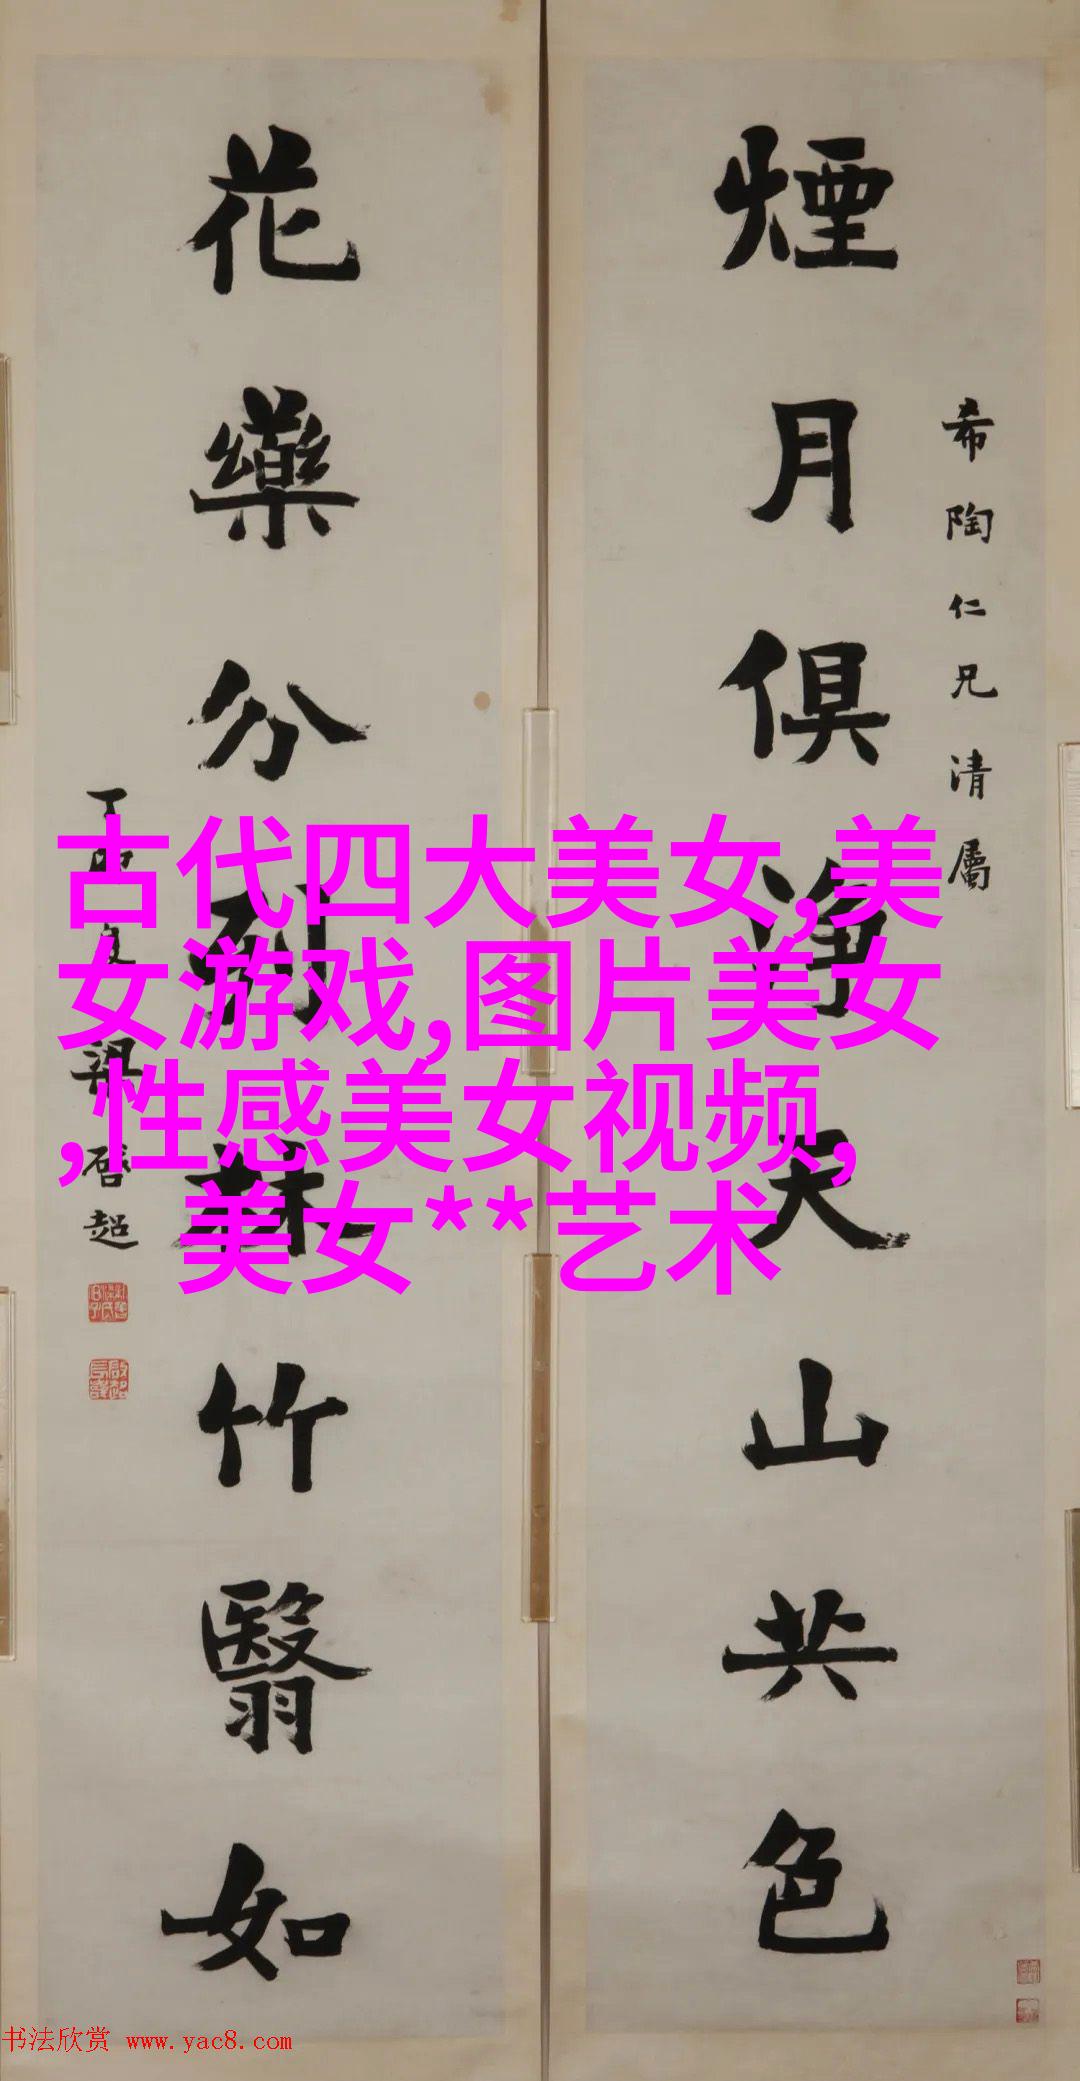 煙月俱淨天山共色
希陶仁兄清屬
花藥分列蘇竹翳如
梁启超
古代四大美女,美
女游戏,图片美女
,性感美女视频,
美女**艺术
书法欣赏 www.yac8.com